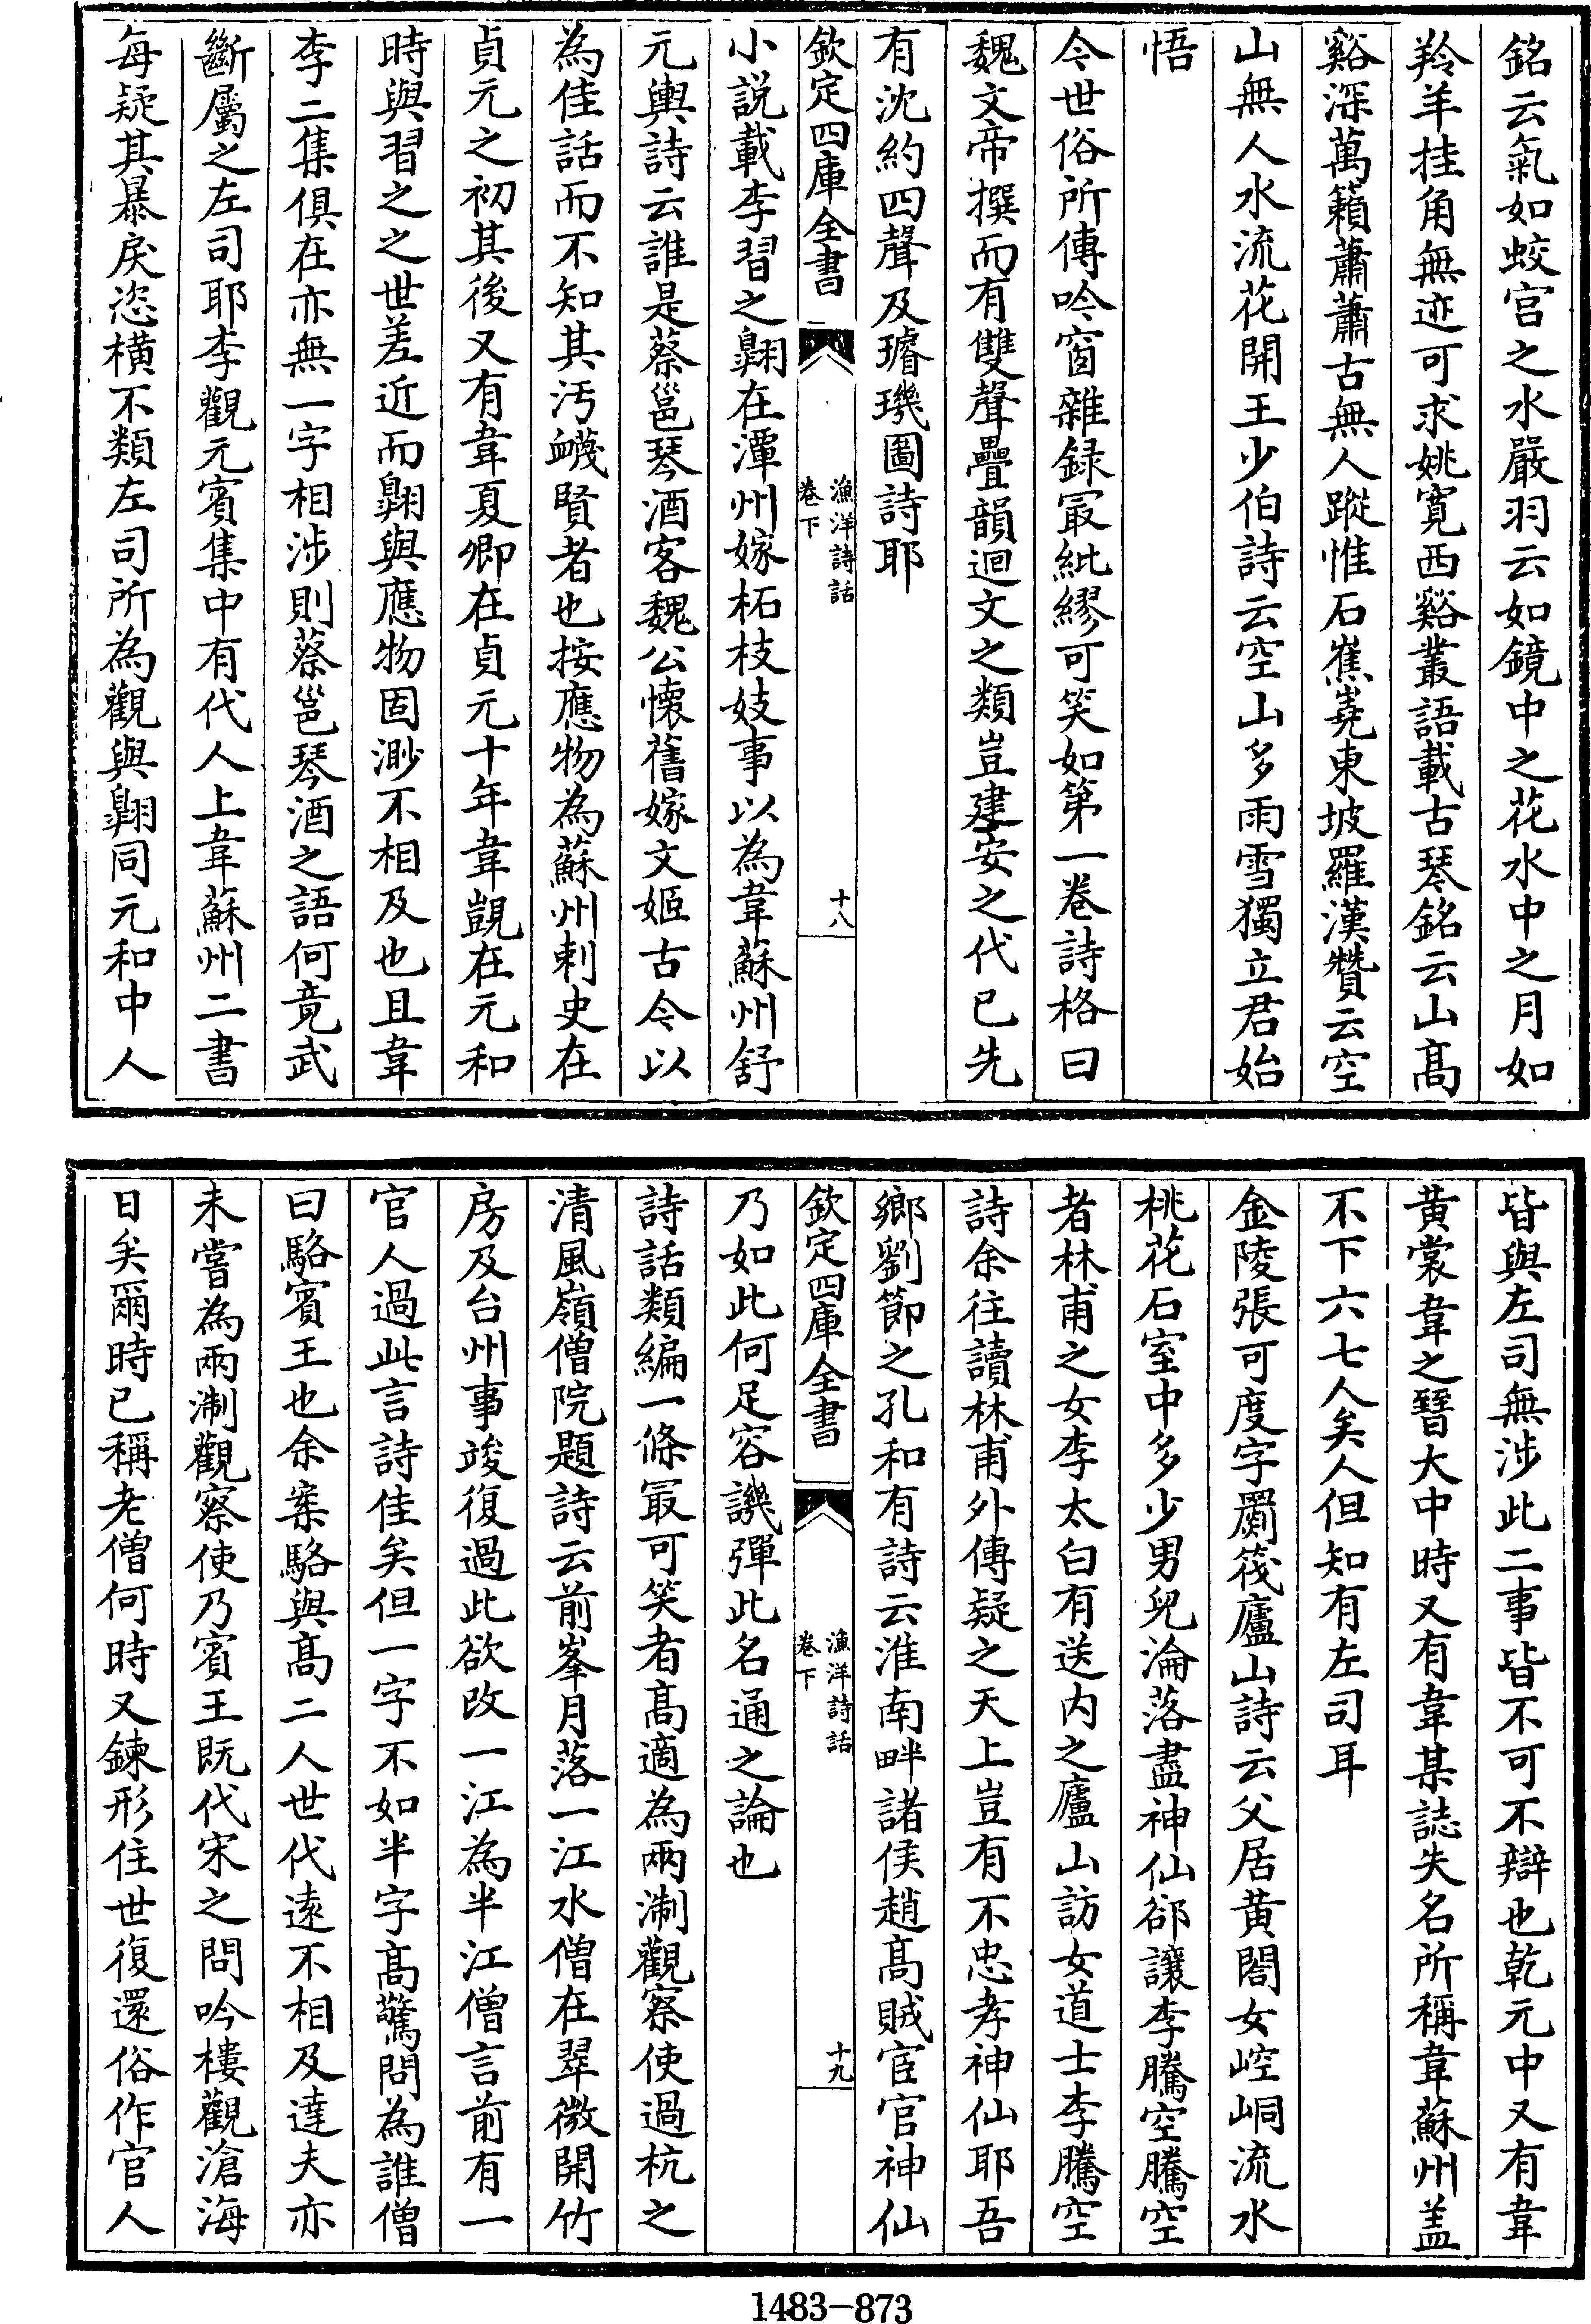 銘云氣如蛟宫之水嚴羽云如鏡中之花水中之月如
羚羊挂角無迹可求姚寛西谿叢語載古琴銘云山髙
谿深萬籟蕭蕭古無人蹤惟石嶕嶢東坡羅漢贊云空
山無人水流花開王少伯詩云空山多雨雪獨立君始
悟
今世俗所傳吟窗雜録冣紕繆可笑如第一卷詩格曰
魏文帝撰而有雙聲疊韻迴文之類豈建安之代已先
有沈約四聲及璿璣圖詩耶
欽定四庫全書
漁洋詩話
卷下
十八
小説載李習之翺在潭州嫁柘枝妓事以為韋蘇州舒
元輿詩云誰是蔡邕琴酒客魏公懷舊嫁文姬古今以
為佳話而不知其汚衊賢者也按應物為蘇州刺史在
貞元之初其後又有韋夏卿在貞元十年韋覬在元和
時與習之之世差近而翺與應物固渺不相及也且韋
李二集俱在亦無一字相涉則蔡邕琴酒之語何竟武
斷屬之左司耶李觀元賓集中有代人上韋蘇州二書
每疑其暴戾恣横不類左司所為觀與翺同元和中人
皆與左司無涉此二事皆不可不辯也乾元中又有韋
黄裳韋之晉大中時又有韋某誌失名所稱韋蘇州盖
不下六七人矣人但知有左司耳
金陵張可度字罽筏廬山詩云父居黄閤女崆峒流水
桃花石室中多少男兒淪落盡神仙郤讓李騰空騰空
者林甫之女李太白有送内之廬山訪女道士李騰空
詩余往讀林甫外傳疑之天上豈有不忠孝神仙耶吾
鄉劉節之孔和有詩云淮南畔諸侯趙髙賊宦官神仙
欽定四庫全書
漁洋詩話
卷下
十九
乃如此何足容譏彈此名通之論也
詩話類編一條冣可笑者髙適為兩淛觀察使過杭之
清風嶺僧院題詩云前峯月落一江水僧在翠微開竹
房及台州事竣復過此欲改一江為半江僧言前有一
官人過此言詩佳矣但一字不如半字髙驚問為誰僧
曰駱賓王也余案駱與髙二人世代逺不相及達夫亦
未嘗為兩淛觀察使乃賓王既代宋之問吟樓觀滄海
日矣爾時已稱老僧何時又鍊形住世復還俗作官人
1483-873